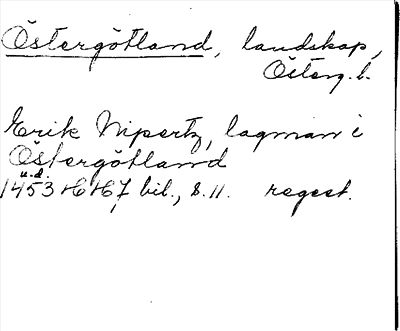 Östergötland, landskap,
Österg. l.
Erik Nipertz, lagman i
Östergötland
u.d.
1453 16/67 bil., s. 11. regest.